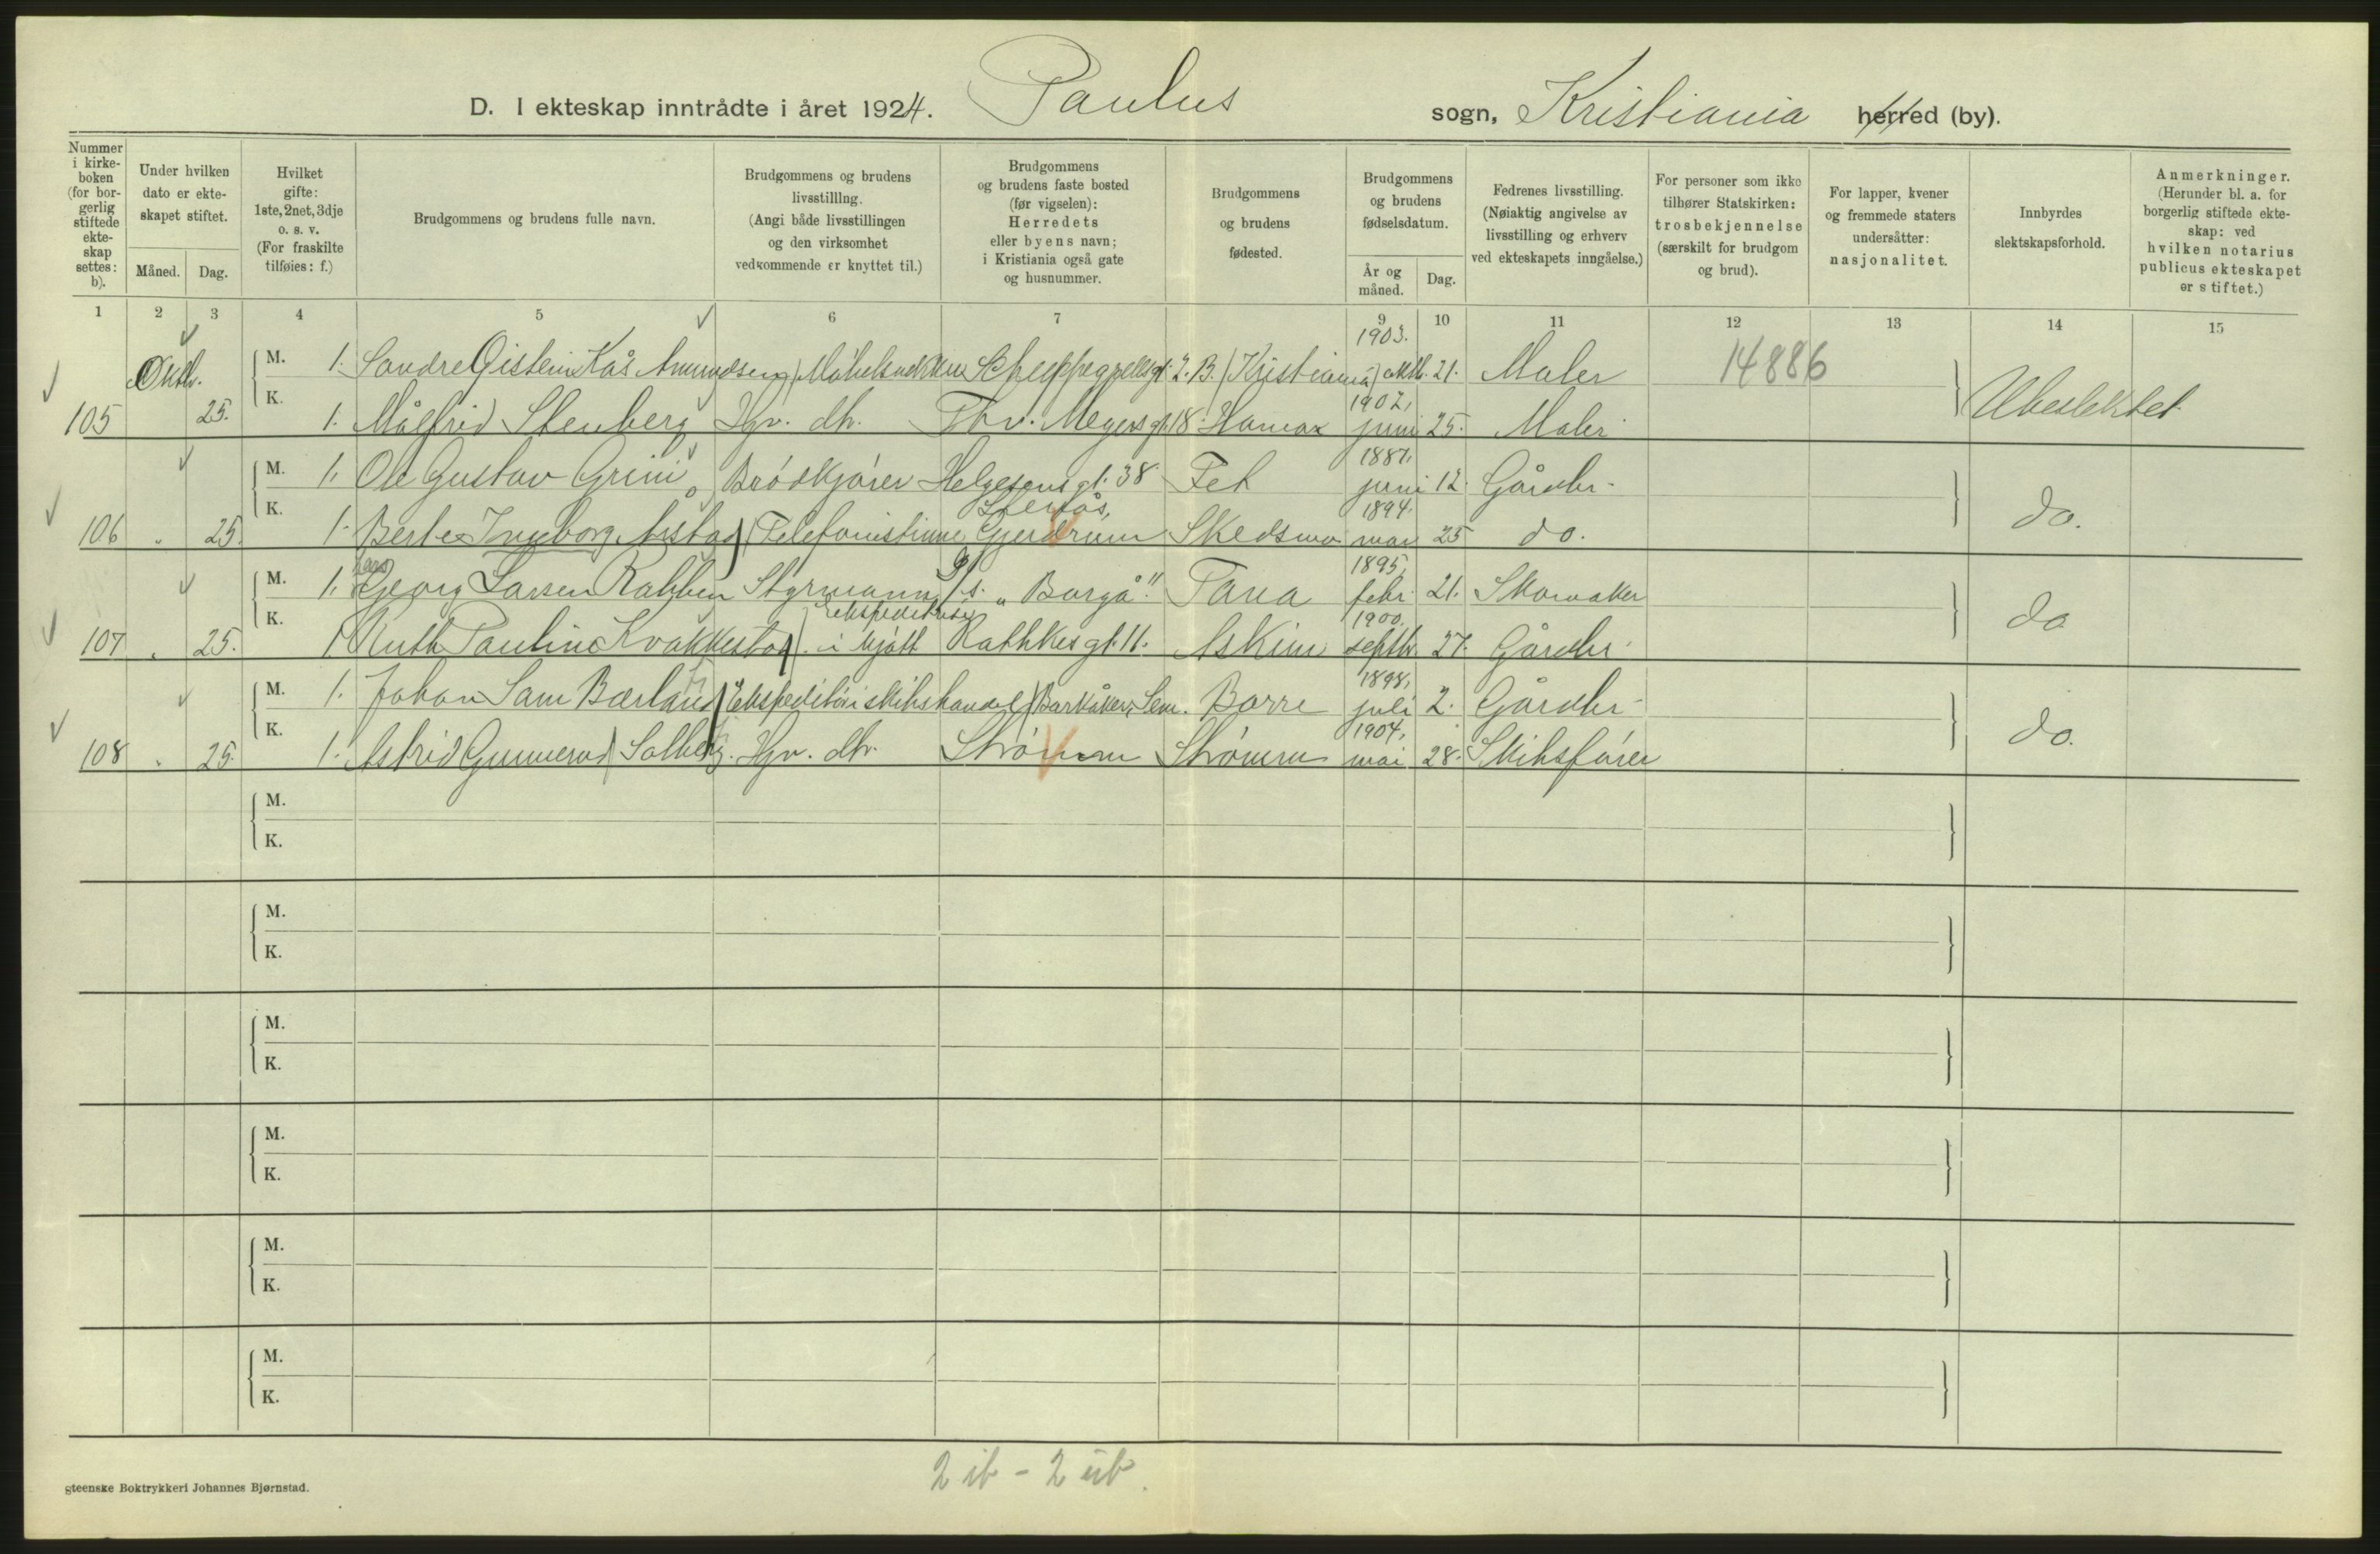 D. I ekteskap inntrådte i året 1924. Paulus sogn, Kristiania herred (by).
Nummer i kirke-boken (for bor-gerlig stiftede ekte-skap settes: b).
Under hvilken dato er ekte-skapet stiftet.
Måned. Dag.
Hvilket gifte: 1ste, 2net, 3dje o. s. v. (For fraskilte tilføies: f.)
Brudgommens og brudens fulle navn.
Brudgommens og brudens livsstilllng. (Angi både livsstillingen og den virksomhet vedkommende er knyttet til.)
Brudgommens og brudens faste bosted (før vigselen): Herredets eller byens navn; i Kristiania også gate og husnummer.
Brudgommens og brudens fødested.
Brudgommens og brudens fødselsdatum.
År og måned. Dag.
Fedrenes livsstilling. (Nøiaktig angivelse av livsstilling og erhverv ved ekteskapets inngåelse.)
For personer som ikke tilhører Statskirken: trosbekjennelse (særskilt for brudgom og brud).
For lapper, kvener og fremmede staters undersåtter: nasjonalitet.
Innbyrdes slektskapsforhold.
Anmerkninger. (Herunder bl. a. for borgerlig stiftede ekte-skap: ved hvilken notarius publicus ekteskapet er stiftet.)
1 2 3 4 5 6 7 9 10 11 12 13 14 15
Oktb. M. 1. Sondre Øistein Kås Amundsen Scheppegrellsgt. 2. B. Kristiania 1903. oktb. 21. Maler 14886
105 25. K. 1. Målfrid Stenberg Hgv. dtr. Thv. Meyersgt. 18. Hamar 1902, juni 25. Maler Ubeslektet
M. 1. Ole Gustav Grini Brødkjører Helgesensgt. 38 Fet juni 12. Gårdbr.
106 " 25. K. 1. Berte Ingeborg Telefonistinne Gjerdrum Skedsmo 1894. mai 25 do. do.
M. 1. Georg Larsen Rabben Styrmann D/s. „Borgå" Tana 1895, febr. 21. Skomaker
107 " 25. K. 1. Ruth Pauline Kvakkestad ekspeditrise i kjøtt Rathkesgt. 11. Askim 1900. septb. 27. Gårdbr. do
M. 1. Johan Sam Bærland Barkåker, Sem. Borre 1898, juli 2. Gårdbr.
108 " 25. K. 1. Astrid Gunnerud Solberg. Hgv. dtr. Strømm Strømm 1904, mai 28. Skibsfører do.
M.
K.
M.
K.
M.
K.
M.
K.
M.
K.
M.
K.
2 ib - 2 ub.
gteenske Boktrykkeri Johannes Bjørnstad.